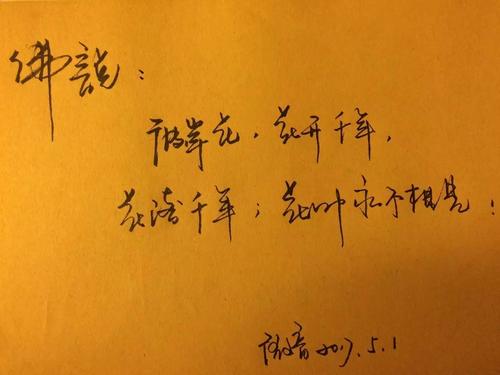 佛說：
彼岸花，花开千年，
花落千年；花叶永不相見！
音 2017.5.1